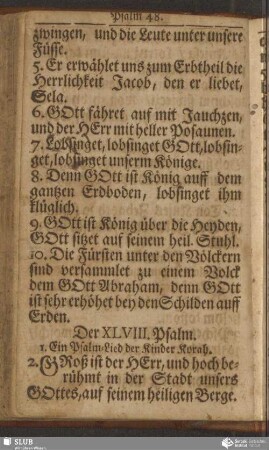 Psalm 48.
zwingen, und die Leute unter unsere
Füsse.
5. Er erwählet uns zum Erbtheil die
Herrlichkeit Jacob, den er liebet,
Sela.
6. GOtt fähret auf mit Jauchzen,
und der HErr mit heller Posaunen.
7. Lobsinget, lobsinget GOtt, lobsin-
get, lobsinget unserm Könige.
8. Denn GOtt ist König auff dem
gantzen Erdboden, lobsinget ihm
klüglich.
9. GOtt ist König über die Heyden,
GOtt sitzet auf seinem heil. Stuhl.
10. Die Fürsten unter den Völckern
sind versammlet zu einem Volck
dem GOtt Abraham, denn GOtt
ist sehr erhöhet bey den Schilden auff
Erden.
Der XLVIII. Psalm.
1. Ein Psalm-Lied der Kinder Korah.
2. Groß ist der HErr, und hoch be-
rühmt in der Stadt unsers
GOttes, auf seinem heiligen Berge.
SLUB
Wir führen Wissen.